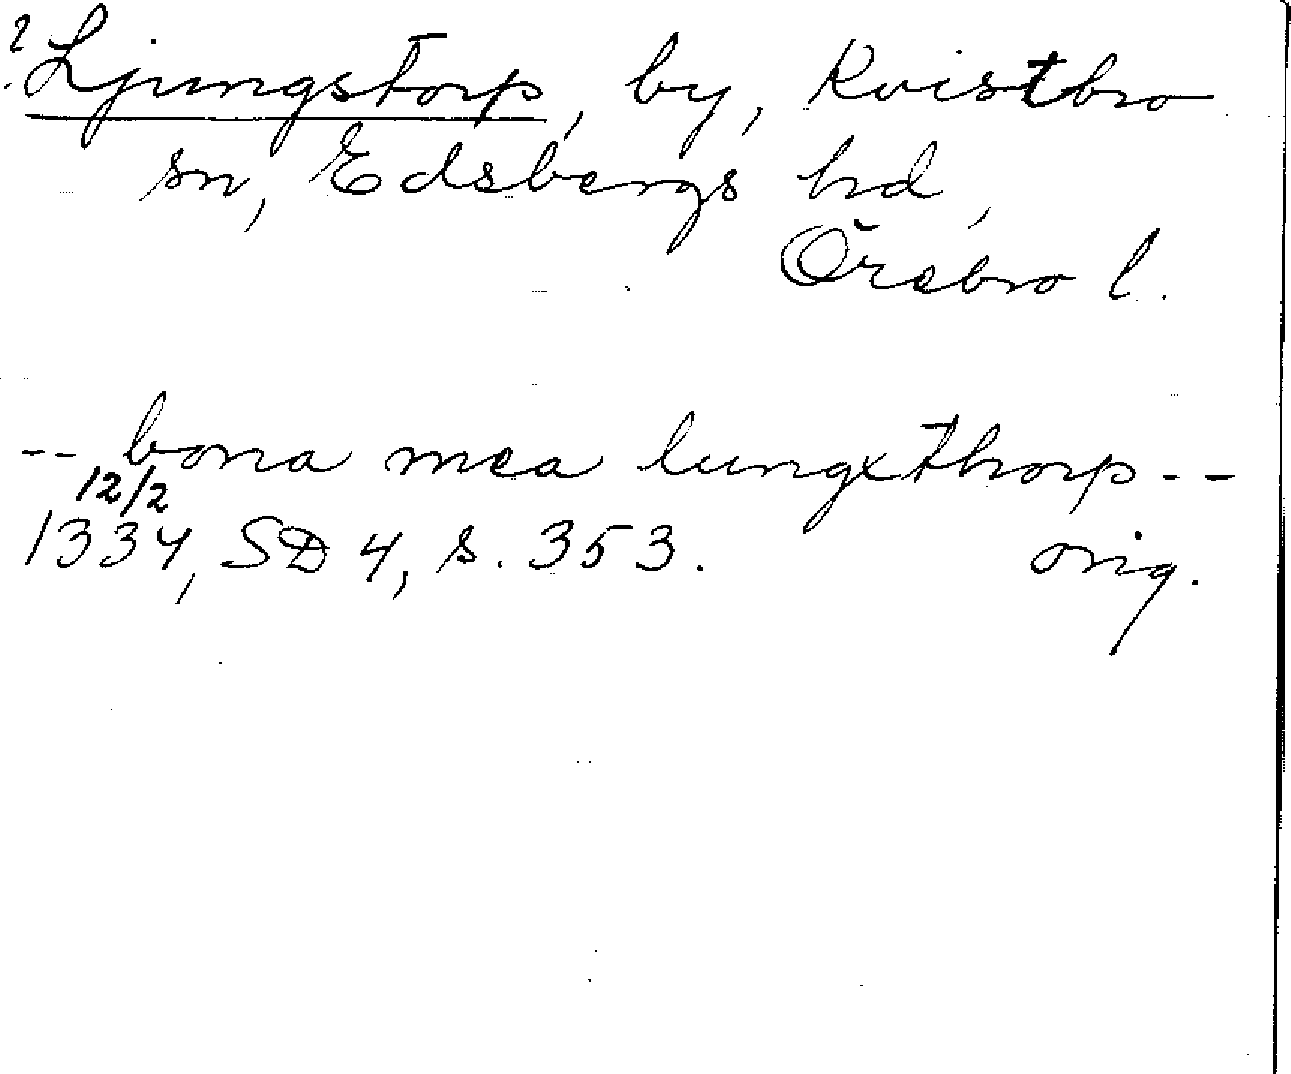 ? Ljungstorp, by, Kvistbro
sn, Edsbergs hd,
Örebro l.
-- bona mea lungxthorp --
12/2
1334, SD 4, s. 353. orig.